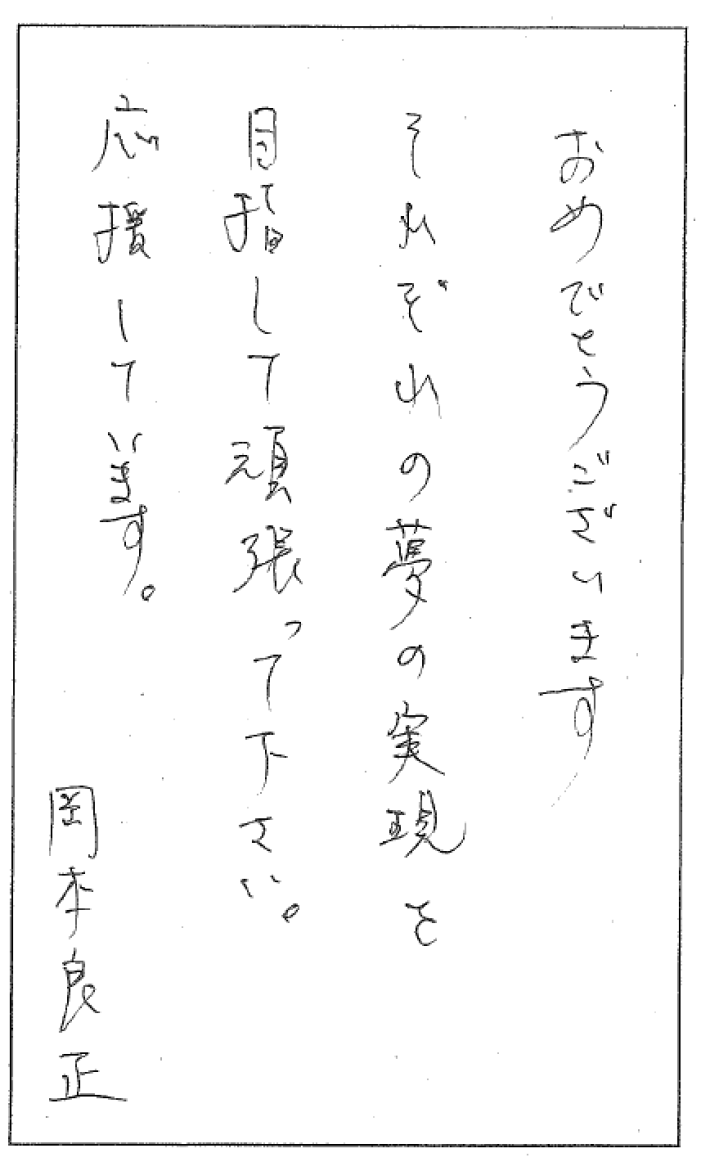 おめでとうございます
それぞれの夢の実現を
目指して頑張って下さい。
応援しています。
岡本良正